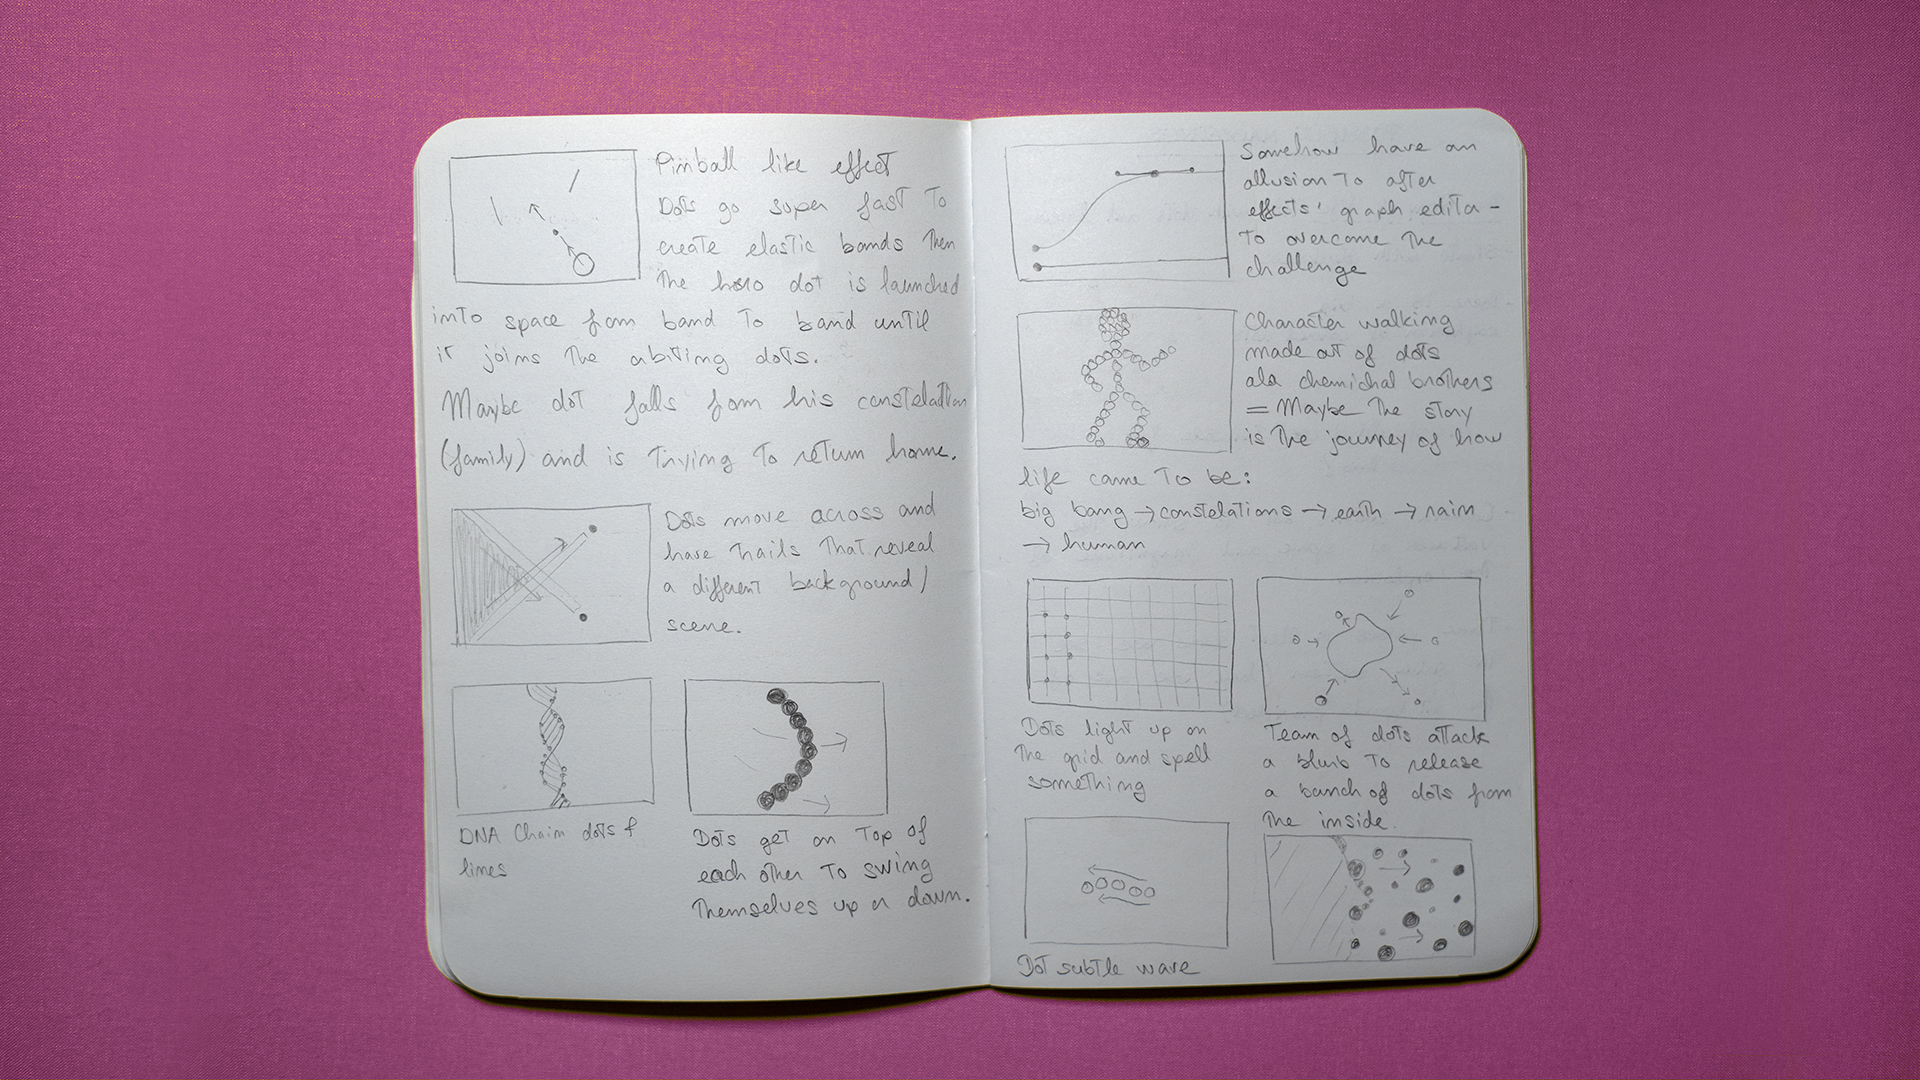 Pinball like effect
Dots go super fast to
create elastic bands then
the hero dot is launched
into space from band to band until
it joins the orbiting dots.
Maybe dot falls form his constelation
(family) and is trying to return home.
Dots move across and
have trails that reveal
a different background/
scene.
DNA Chain dots &
lines
Dots get on top of
each other to swing
themselves up or down.
Somehow have an
allusion to after
effects' graph editor -
to overcome the
challenge
Character walking
made out of dots
ala chemichal brothers
= Maybe the story
is the journey of how
life came to be:
big bang → constelations → earth → rain
→ human
Dots light up on
the grid and spell
something
Team of dots attack
a blurb to release
a bunch of dots from
the inside.
Dot subtle wave